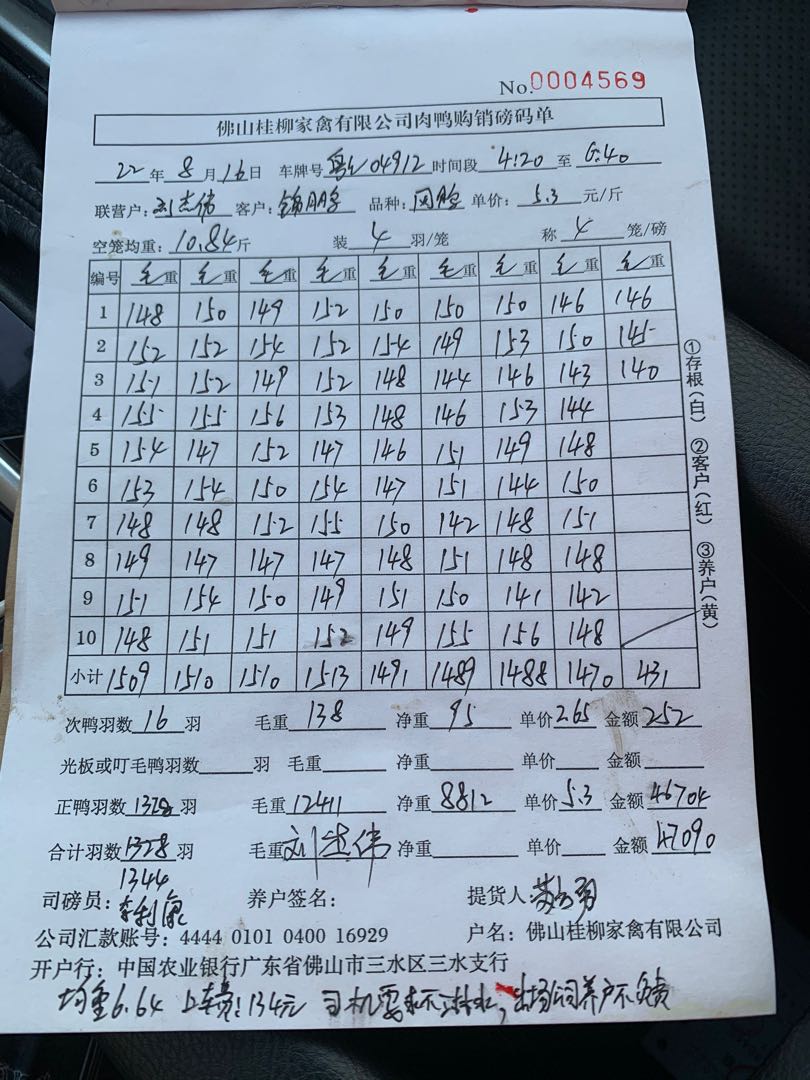 No.0004569
佛山桂柳家禽有限公司肉鸭购销磅码单
22年8月16日 车牌号 粤 04912 时间段 4:20 至 6:40
联营户:刘志伟 客户: 品种: 单价:5.3元/斤
空笼均重:10.84斤 装4羽/笼 称4笼/磅
编号 毛重 毛重 毛重 毛重 毛重 毛重 毛重 毛重 毛重
1 148 150 149 152 150 150 150 146 146
2 152 152 154 152 154 149 153 150 145
3 151 152 149 152 148 144 146 143 140
4 155 155 156 153 148 146 153 144
5 154 147 152 147 146 151 149 148
6 153 154 150 154 147 151 144 150
7 148 148 152 155 150 142 148 151
8 149 147 147 147 148 151 148 148
9 151 154 150 149 151 150 141 142
10 148 151 151 152 149 155 156 148
小计 1509 1510 1510 1513 1491 1489 1488 1470 431
①存根(白) ②客户(红) ③养户(黄)
次鸭羽数16羽 毛重138 净重95 单价2.65 金额252
光板或叮毛鸭羽数 羽 毛重 净重 单价 金额
正鸭羽数1328羽 毛重12411 净重8812 单价5.3 金额46704
合计羽数1328羽 毛重刘志伟 净重 单价 金额47090
1344
司磅员:李利 养户签名: 提货人:
公司汇款账号:4444 0101 0400 16929 户名:佛山桂柳家禽有限公司
开户行:中国农业银行广东省佛山市三水区三水支行
均重6.64 上车费:134元 司机要求不淋水,饲养户不负责